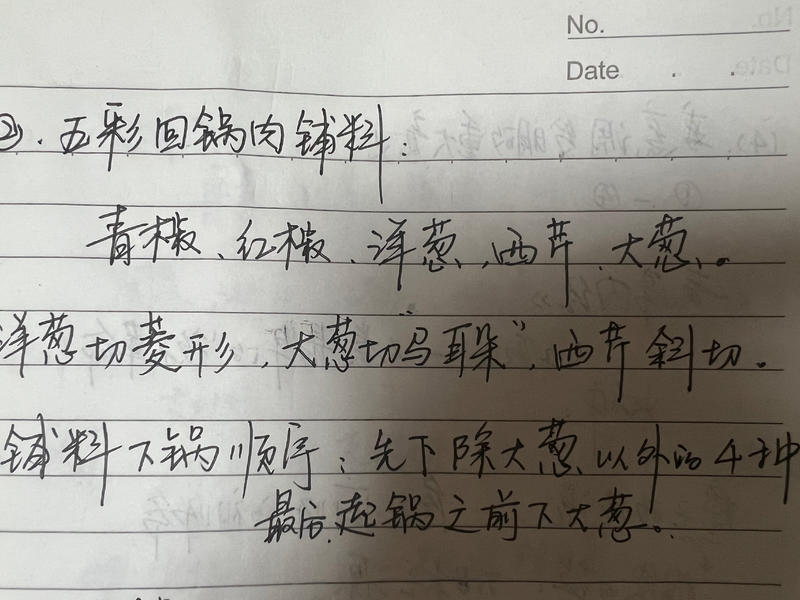 No.
Date . .
②. 五彩回锅肉铺料:
青椒、红椒、洋葱、西芹、大葱、。
洋葱切菱形, 大葱切“马耳朵”, 西芹斜切。
铺料下锅顺序: 先下除大葱以外的4种
最后起锅之前下大葱。